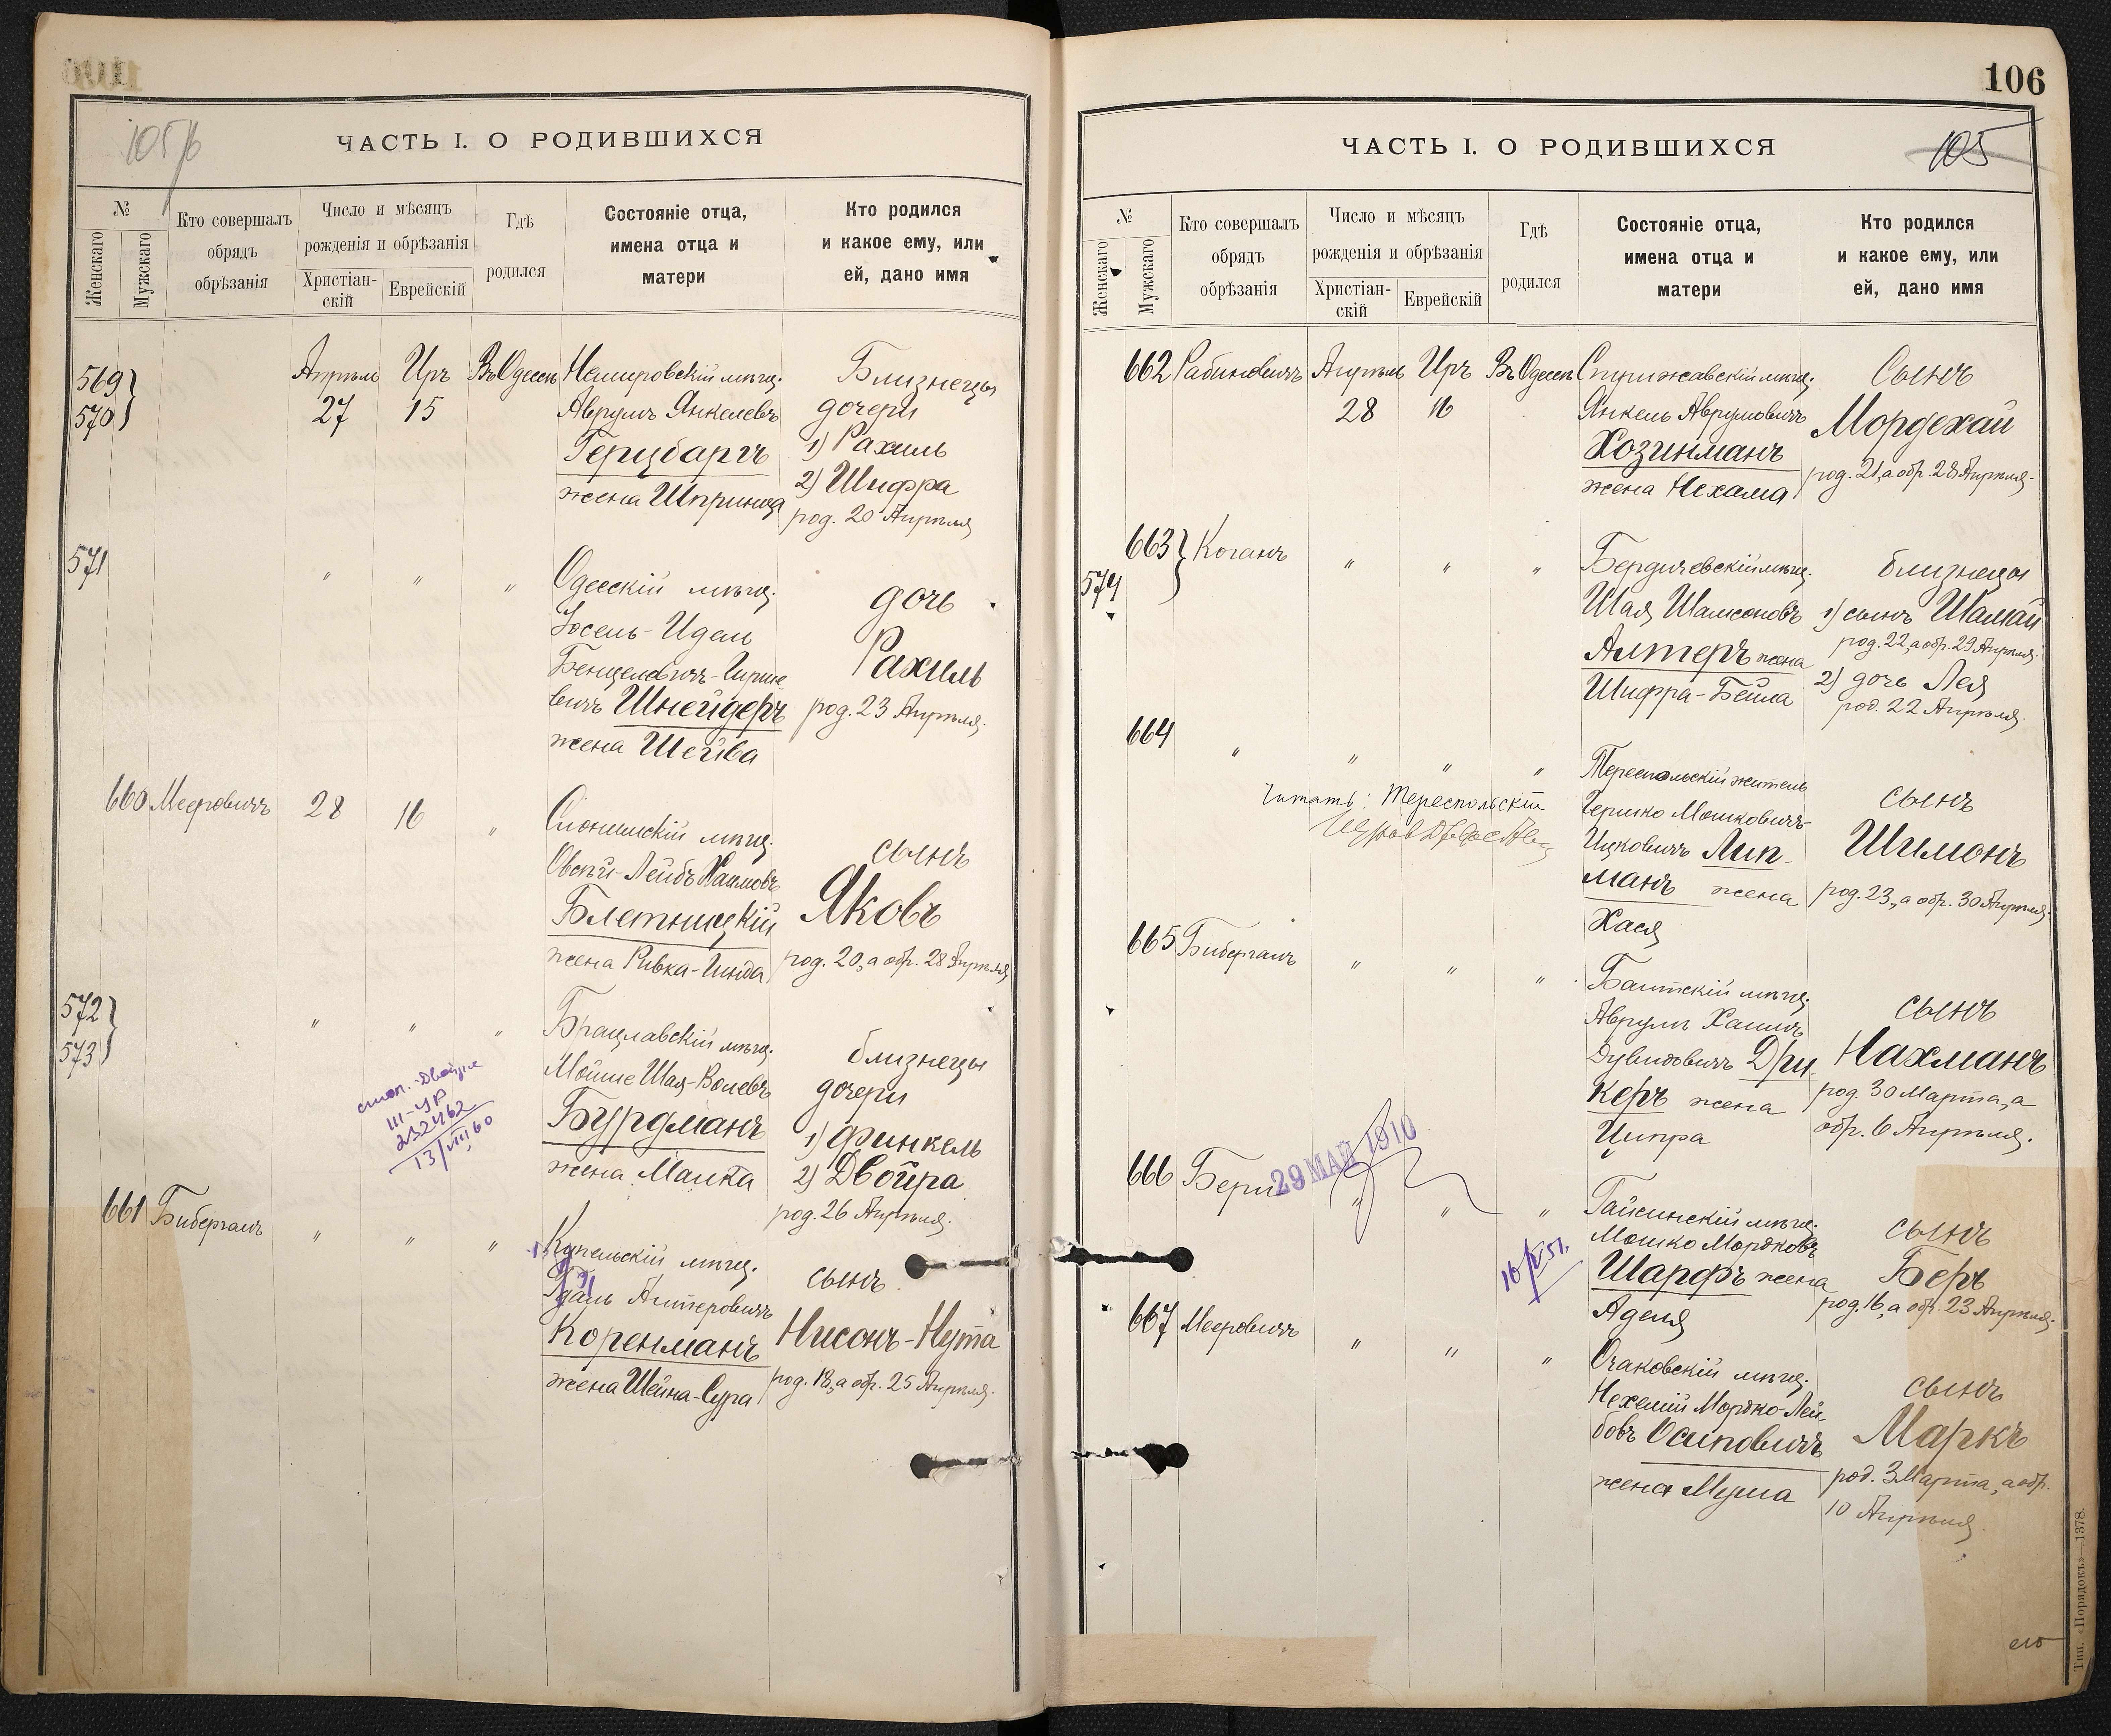 105/б
ЧАСТЬ I. О РОДИВШИХСЯ
№
Женскаго
Мужскаго
Кто совершалъ
обрядъ
обрѣзанія
Число и мѣсяцъ
рожденія и обрѣзанія
Христіан-
скій
Еврейскій
Гдѣ
родился
Состояніе отца,
имена отца и
матери
Кто родился
и какое ему, или
ей, дано имя
569
570
Апрѣль
27
Иръ
15
Въ Одессѣ
Немировскій мѣщ.
Аврумъ Янкелевъ
Герцбаргъ
жена Шпринца
Близнецы
дочери
1) Рахиль
2) Шифра
род. 20 Апрѣля
571
" " "
Одесскій мѣщ.
Іосель-Идель
Бенцелевичъ-Гирше
вичъ Шнейдеръ
жена Шейва
дочь
Рахиль
род. 23 Апрѣля.
660 Мееровичъ 28 16 "
Слонимскій мѣщ.
Овсѣй-Лейбъ Хаимовъ
Блетницкій
жена Ривка-Гинда
сынъ
Яковъ
род. 20, а обр. 28 Апрѣля
572
573
" " "
Брацлавскій мѣщ.
Мойше Шая-Волевъ
Бурдманъ
жена Малка
близнецы
дочери
1) Финкель
2) Двойра
род. 26 Апрѣля.
III-УР
232462
13/VII 60
661 Бибергалъ " " "
Купельскій мѣщ.
Гдаль Алтеровичъ
Коренманъ
жена Шейна-Сура
сынъ
Нисонъ-Нута
род. 18, а обр. 25 Апрѣля.
106
ЧАСТЬ I. О РОДИВШИХСЯ
105
№
Женскаго
Мужскаго
Кто совершалъ
обрядъ
обрѣзанія
Число и мѣсяцъ
рожденія и обрѣзанія
Христіан-
скій
Еврейскій
Гдѣ
родился
Состояніе отца,
имена отца и
матери
Кто родился
и какое ему, или
ей, дано имя
662 Рабиновичъ
Апрѣль
28
Иръ
16
Въ Одессѣ
Стрижавскій мѣщ.
Янкель Аврумовичъ
Хозинманъ
жена Нехама
Сынъ
Мордехай
род. 21, а обр. 28 Апрѣля.
663
574
Коганъ " " "
Бердичевскій мѣщ.
Шая Шамсоновъ
Алтеръ жена
Шифра-Бейла
близнецы
1) сынъ Шамай
род. 22, а обр. 29 Апрѣля.
2) дочь Лея
род. 22 Апрѣля.
664 " " " "
Тереспольскій житель
Гершко Мошковичъ-
Ицковичъ Лип-
манъ жена
Хася
Читать: Тереспольскій
сынъ
Шимонъ
род. 23, а обр. 30 Апрѣля.
665 Бибергалъ " " "
Балтскій мѣщ.
Аврумъ Хаимъ
Дувидовичъ Дри-
керъ жена
Ципра
сынъ
Нахманъ
род. 30 Марта, а
обр. 6 Апрѣля.
29 МАЙ 1910
666 Берш " " "
Гайсинскій мѣщ.
Мошко Мордковъ
Шарфъ жена
Аделя
сынъ
Беръ
род. 16, а обр. 23 Апрѣля.
667 Мееровичъ " " "
Очаковскій мѣщ.
Нехемій Мордко-Лей-
бовъ Осиповичъ
жена Муша
сынъ
Маркъ
род. 3 Марта, а обр.
10 Апрѣля
Тип. «Порядокъ»—1378.